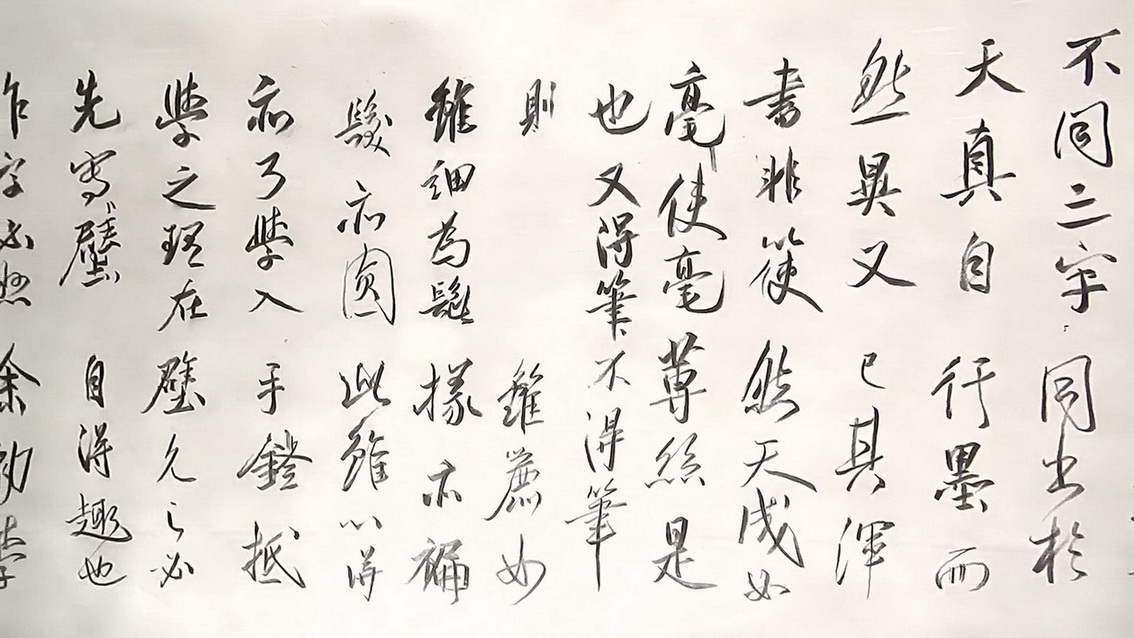 不同三字同出於
天真自行墨而
然異又已其渾
書非使然天成如
毫使毫尊絲是
也又得筆不得筆
則雖麄如
雖細為髭樣亦褊
髮亦圓此雖心得
亦了學入手鐙抵
學之理在壁先之必
先寫壁自得趣也
乍字必然余幼學